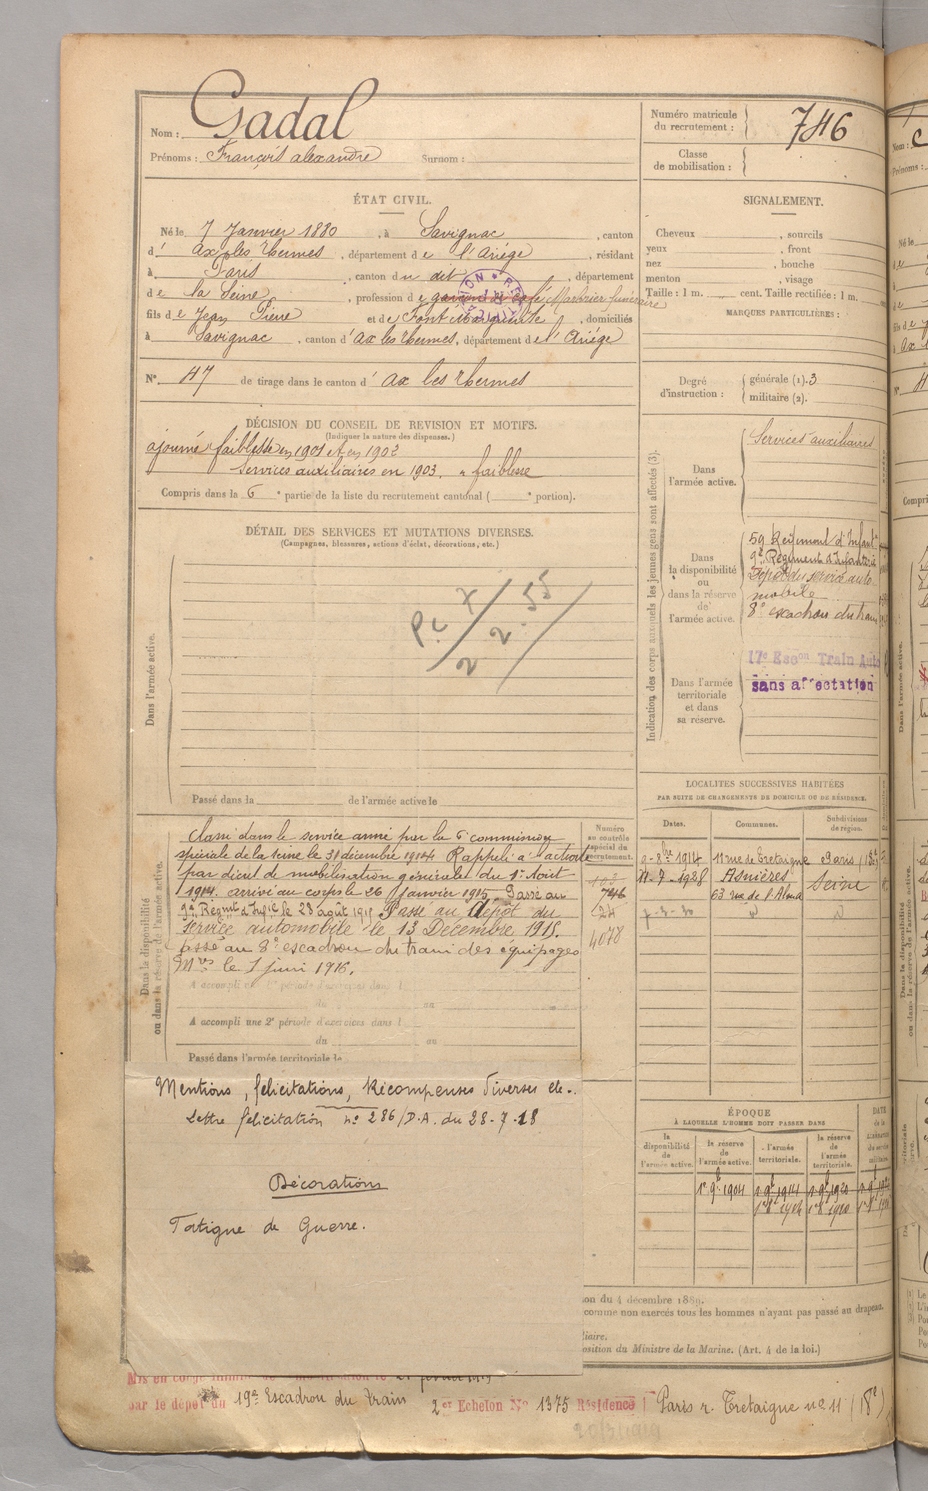 Nom : Gadal
Prénoms : François alexandre Surnom :
Numéro matricule du recrutement : 746
Classe de mobilisation :
ÉTAT CIVIL.
Né le 7 Janvier 1880, à Savignac, canton
d' ax les thermes, département de l'Ariége, résidant
à Paris, canton du dit, département
de la Seine, profession de garçon de café Marbrier funéraire
fils de Jean Pierre et de Font Marguerite, domiciliés
à Savignac, canton d'ax les thermes, département de l'Ariége
N° 47 de tirage dans le canton d' ax les thermes
SIGNALEMENT.
Cheveux , sourcils
yeux , front
nez , bouche
menton , visage
Taille : 1 m. cent. Taille rectifiée : 1 m.
MARQUES PARTICULIÈRES :
Degré d'instruction : générale (1). 3
militaire (2).
DÉCISION DU CONSEIL DE REVISION ET MOTIFS.
(Indiquer la nature des dispenses.)
ajourné "faiblesse" en 1901 et en 1902
Services auxiliaires en 1903. "faiblesse
Compris dans la 6e partie de la liste du recrutement cantonal ( e portion).
DÉTAIL DES SERVICES ET MUTATIONS DIVERSES.
(Campagnes, blessures, actions d'éclat, décorations, etc.)
Dans l'armée active.
Passé dans la de l'armée active le
Indication des corps auxquels les jeunes gens sont affectés (3).
Dans l'armée active.
Services auxiliaires
Dans la disponibilité ou dans la réserve de l'armée active.
59 Régiment d'Infant
9e Régiment d'Infanterie
Dépôt du service auto-
mobile
8e escadron du train
Dans l'armée territoriale et dans sa réserve.
17e Escon Train Auto
sans affectation
Dans la disponibilité ou dans la réserve de l'armée active.
Classé dans le service armé par la 6e commission
spéciale de la Seine le 31 décembre 1914 Rappelé à l'activité
par décret de mobilisation générale du 1er Août
1914. arrivé au corps le 26 Janvier 1915 Passé au
9e Régmt d'Infie le 23 août 1915 Passé au Dépôt du
service automobile le 13 Décembre 1915.
passé au 8e escadron du train des équipages
Mres le 1 juin 1916.
A accompli une 2e période d'exercices dans l
du au
Passé dans l'armée territoriale le
Numéro au contrôle spécial du recrutement.
746
24
4078
LOCALITÉS SUCCESSIVES HABITÉES
PAR SUITE DE CHANGEMENTS DE DOMICILE OU DE RÉSIDENCE.
Dates. Communes. Subdivisions de région.
9-8bre 1914 11 rue de Tretaigne Paris (18e)
11-7-1928 Asnières Seine
63 rue de l'Alma
ÉPOQUE
À LAQUELLE L'HOMME DOIT PASSER DANS
la disponibilité de l'armée active.
la réserve de l'armée active.
l'armée territoriale.
la réserve de l'armée territoriale.
DATE de la
1er 9bre 1904
Mentions, félicitations, Récompenses diverses etc.
Lettre félicitation n° 286/D.A. du 28-7-18
Décorations
Fatigue de Guerre.
on du 4 décembre 1889.
comme non exercés tous les hommes n'ayant pas passé au drapeau.
liaire.
position du Ministre de la Marine. (Art. 4 de la loi.)
par le dépôt du 19e Escadron du train 2er Echelon N° 1375 Résidence Paris r. Tretaigne n° 11 (18e)